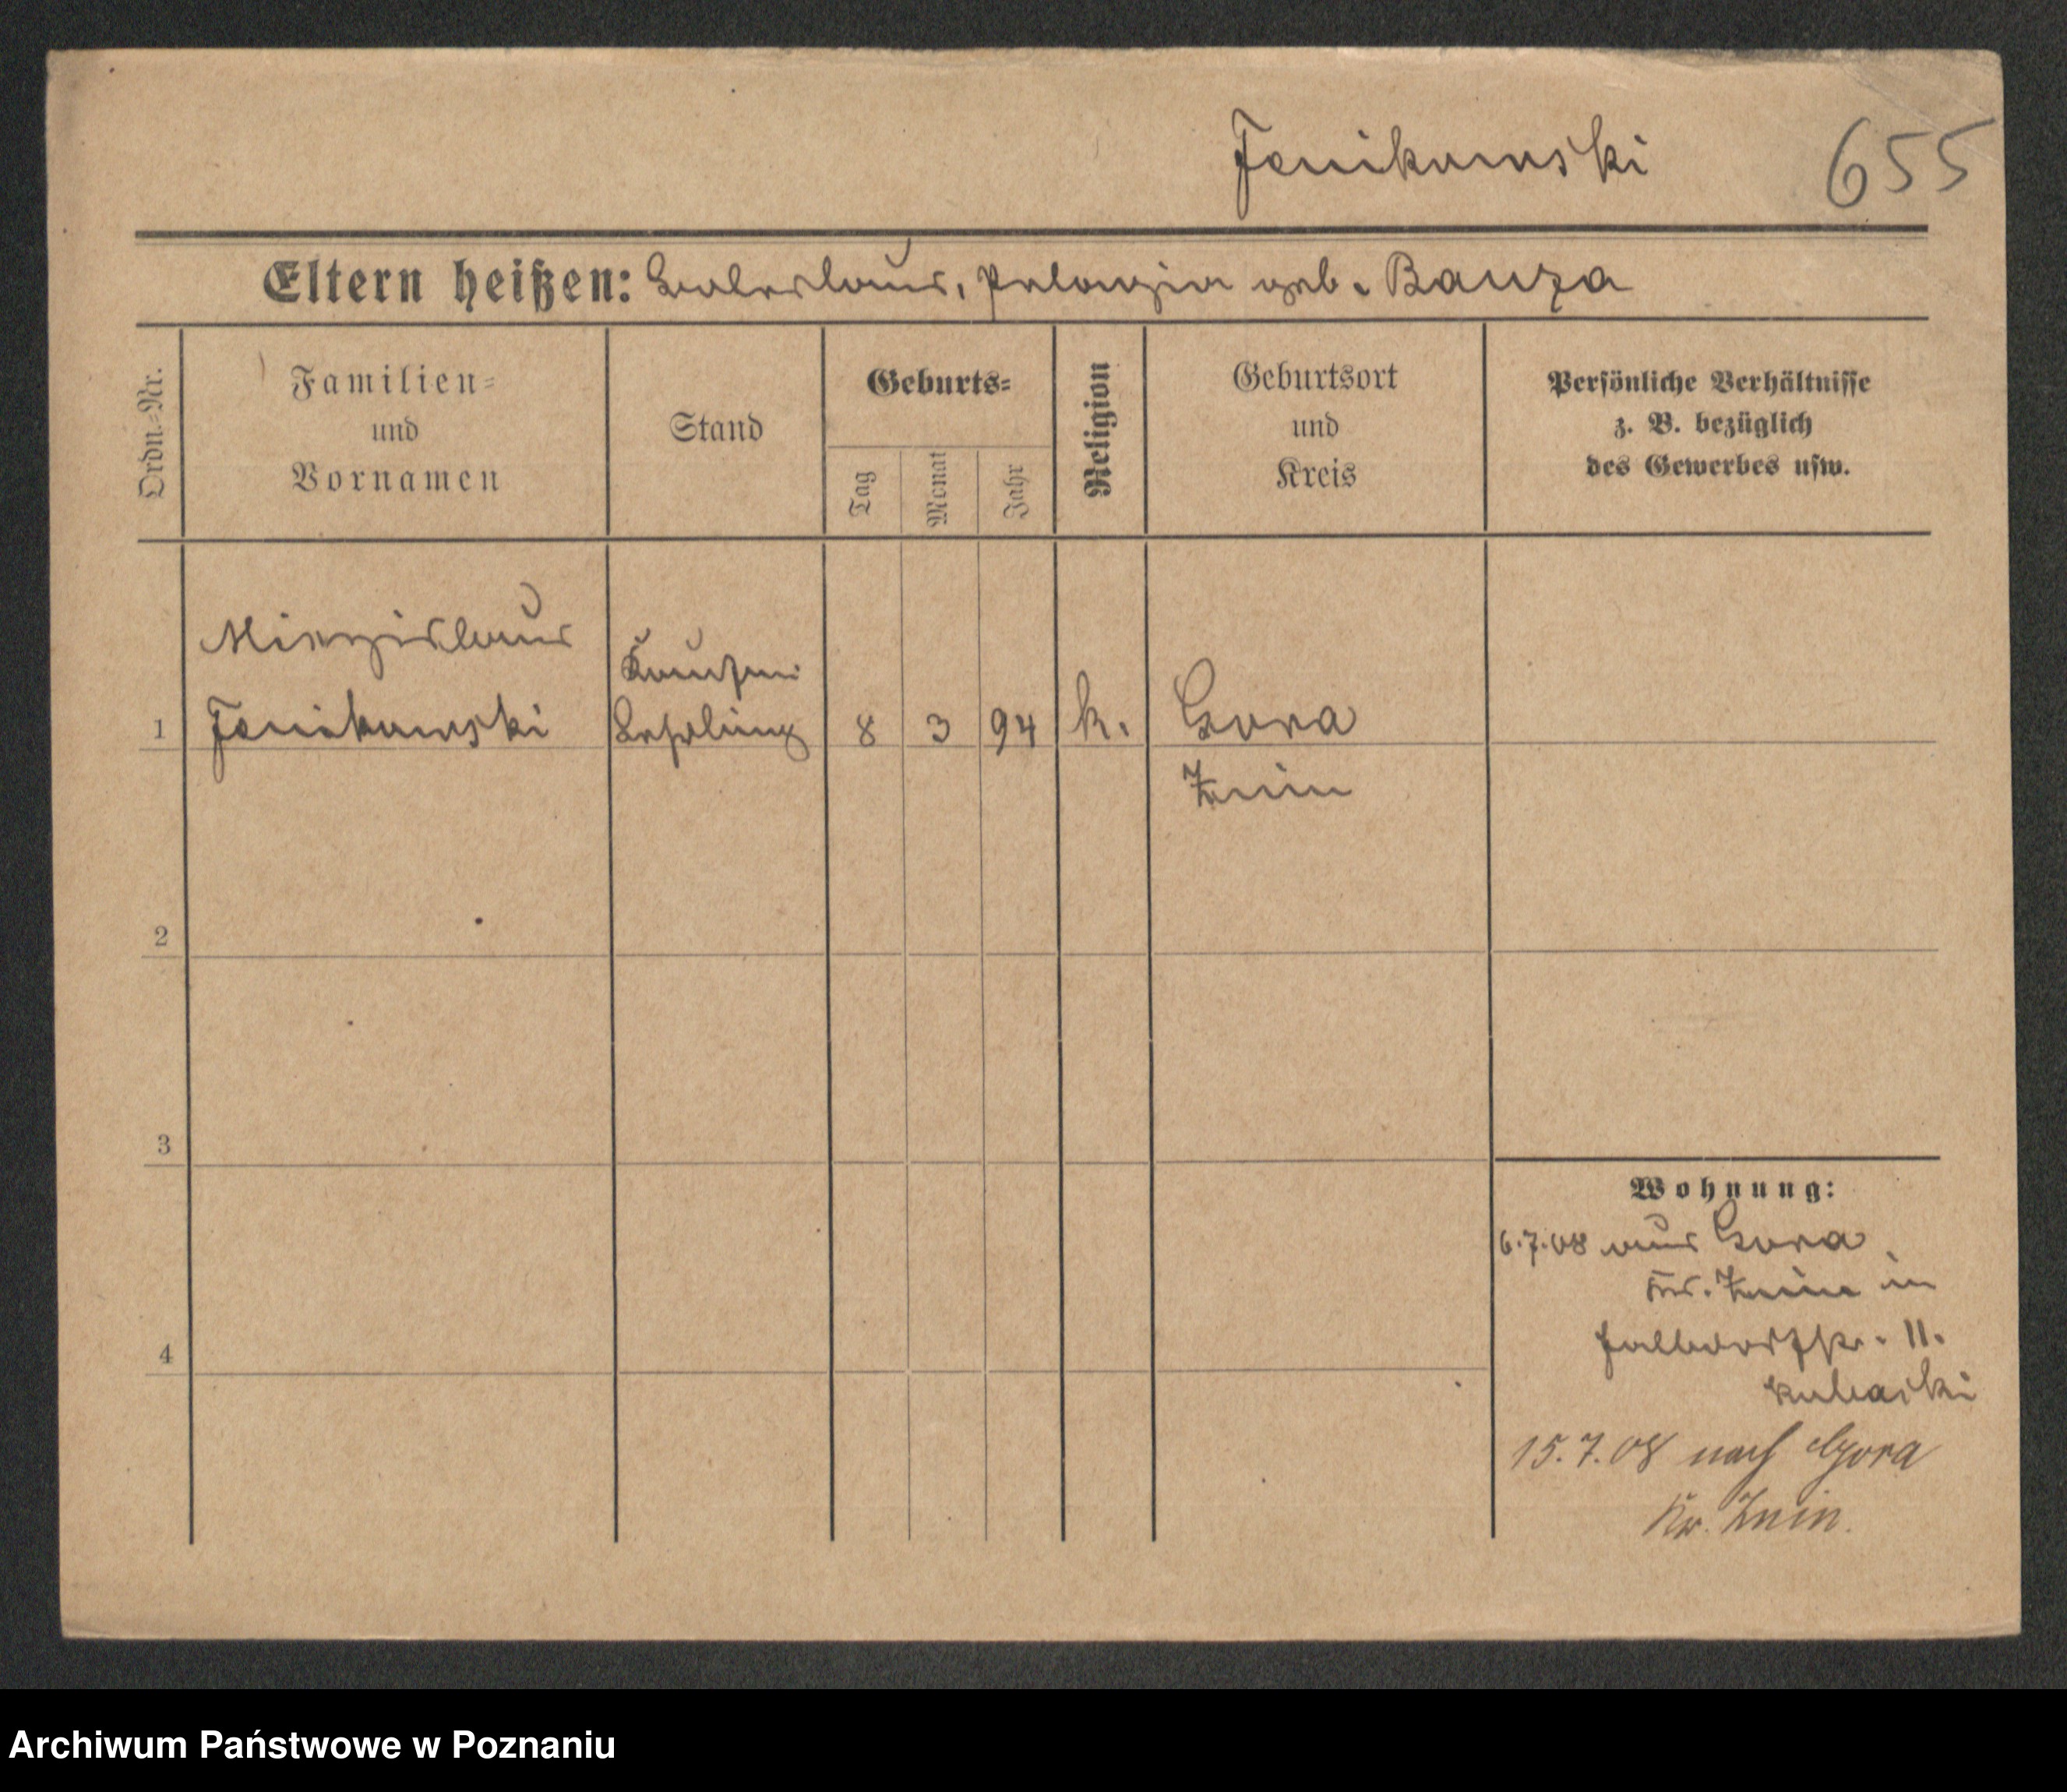 Jenikowski 655
Eltern heißen: Boleslaus, Pelagia geb. Banza
Ordn.-Nr.
Familien-
und
Vornamen
Stand
Geburts-
Tag
Monat
Jahr
Religion
Geburtsort
und
Kreis
Persönliche Verhältnisse
z. B. bezüglich
des Gewerbes usw.
Miecislaus
Jenikowski
Kaufm.
Lehrling
1 8 3 94 k. Gora
Znin
2
3
4
Wohnung:
6.7.08 aus Gora
Kr. Znin in
11.
Kubacki
15.7.08 nach Gora
Kr. Znin.
Archiwum Państwowe w Poznaniu